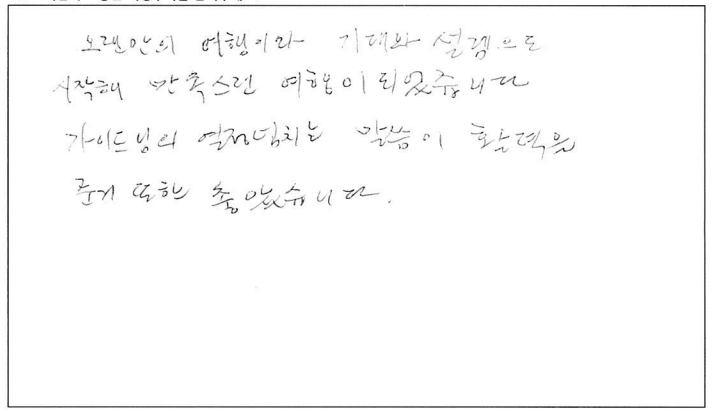 오랜만의 여행이라 기대와 설렘으로
시작해 만족스런 여행이 되었습니다
가이드님의 열정넘치는 말씀이 활력을
준거 또한 좋았습니다.